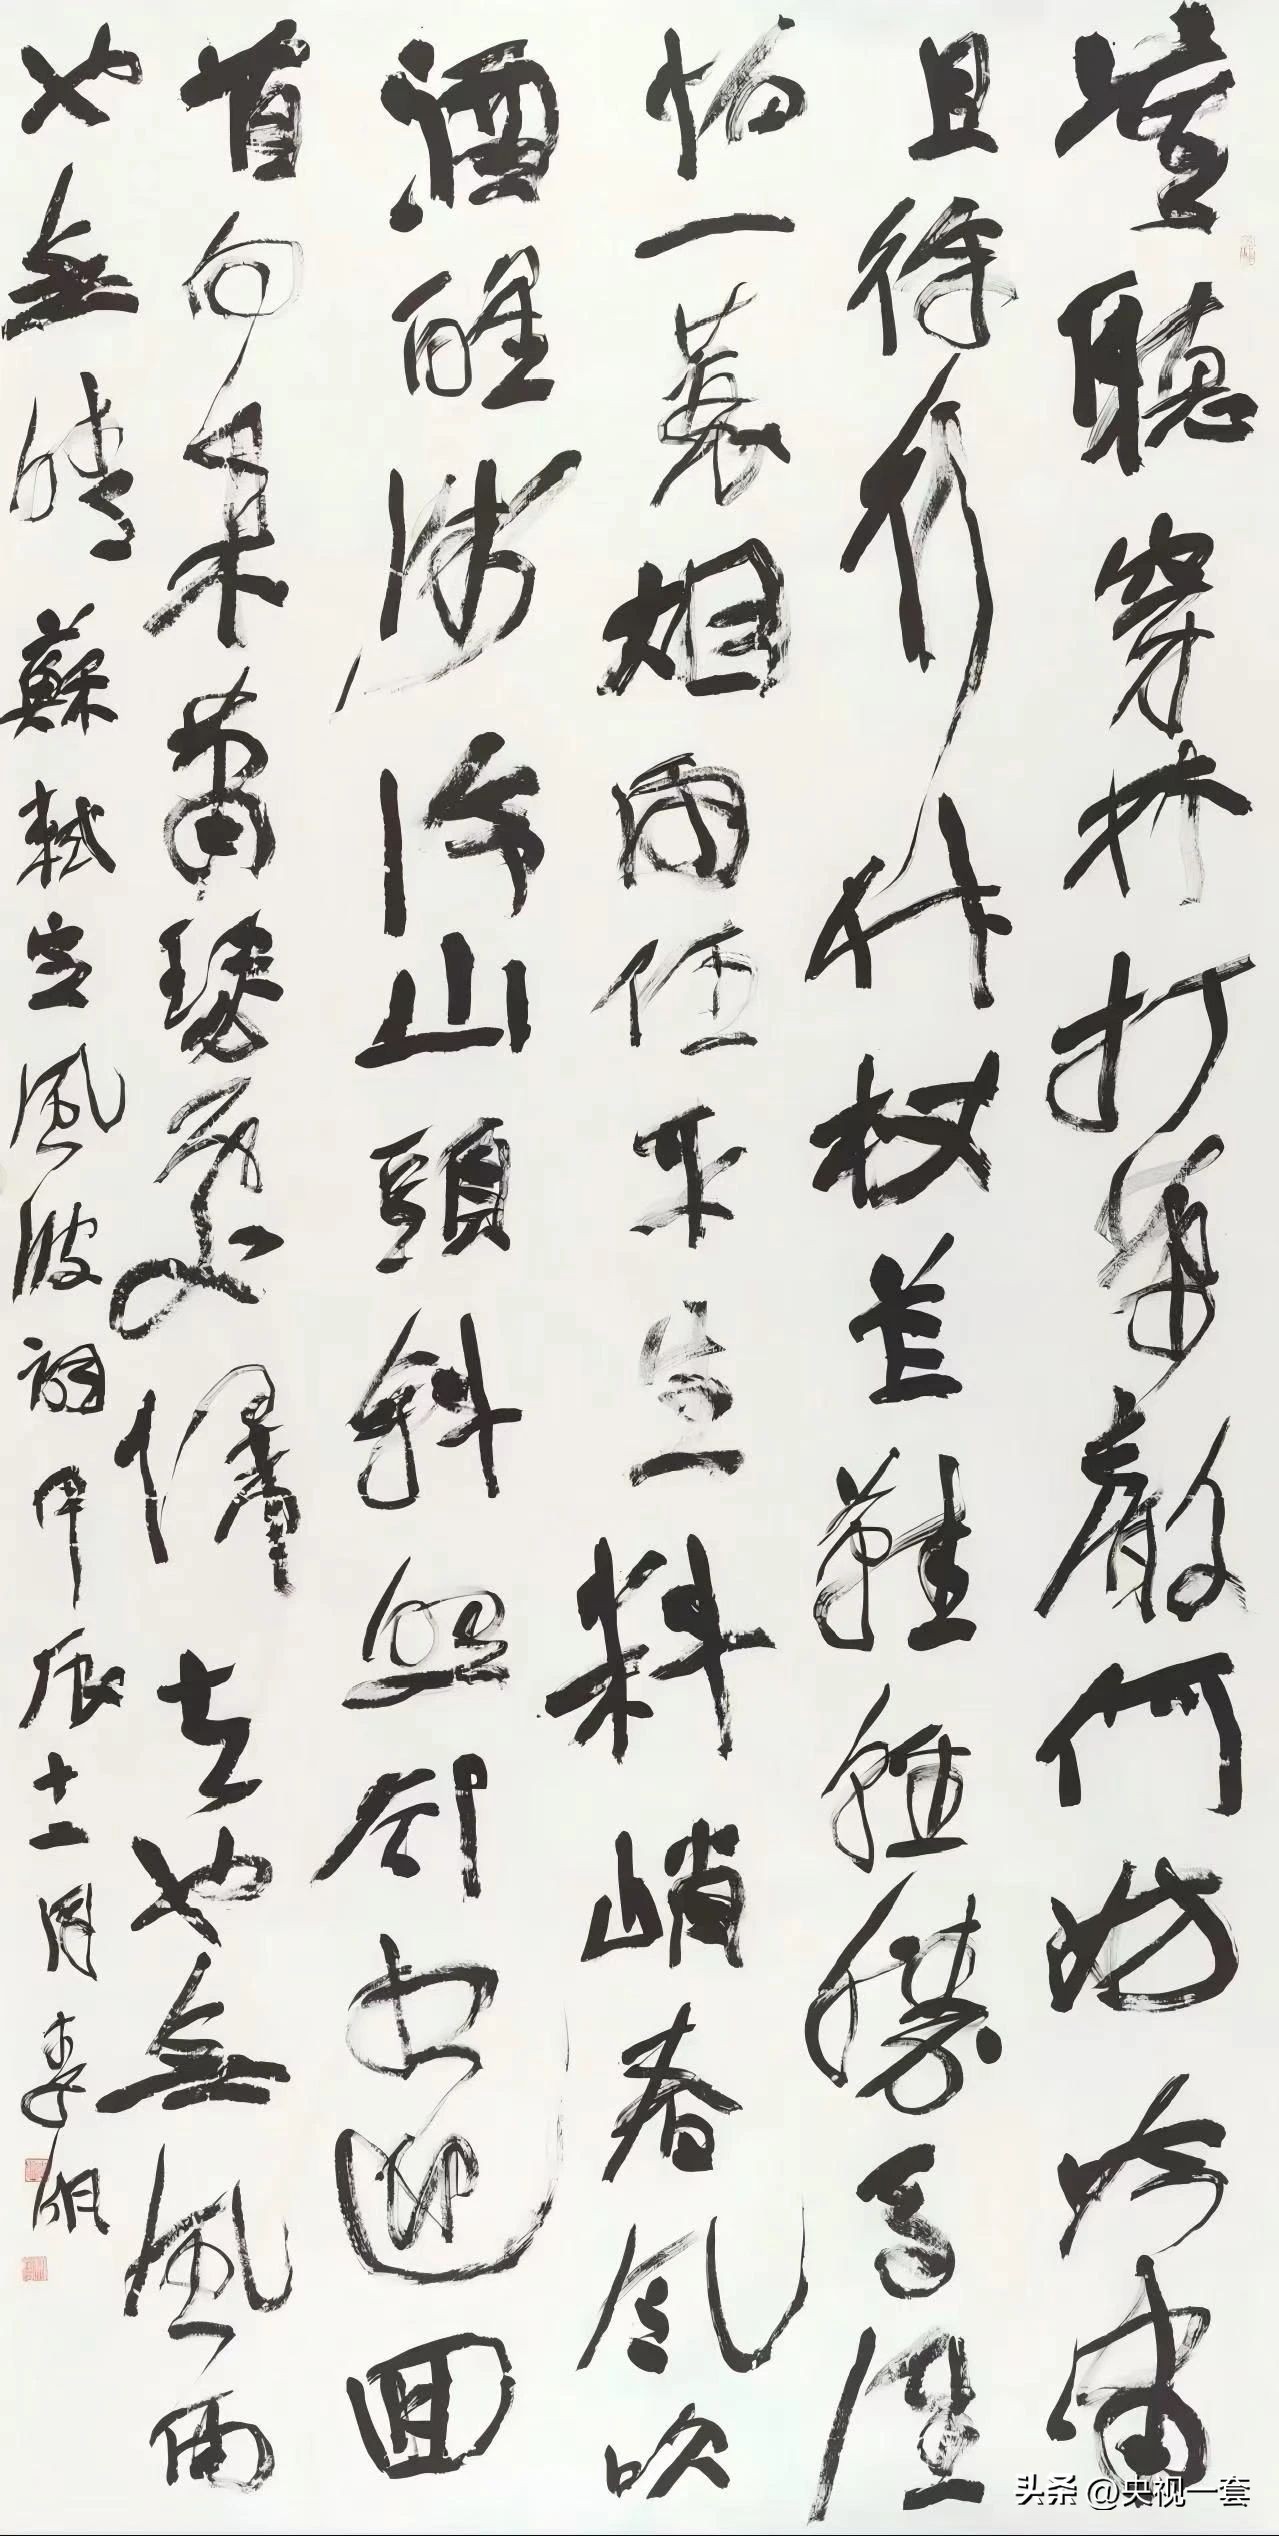 莫聽穿林打葉聲何妨吟嘯
且徐行竹杖芒鞋輕勝馬誰
怕一蓑烟雨任平生料峭春风吹
酒醒微冷山頭斜照却相迎回
首向来蕭瑟處歸去也無風雨
也無晴 蘇軾定風波詞甲辰十一月
头条 @央视一套